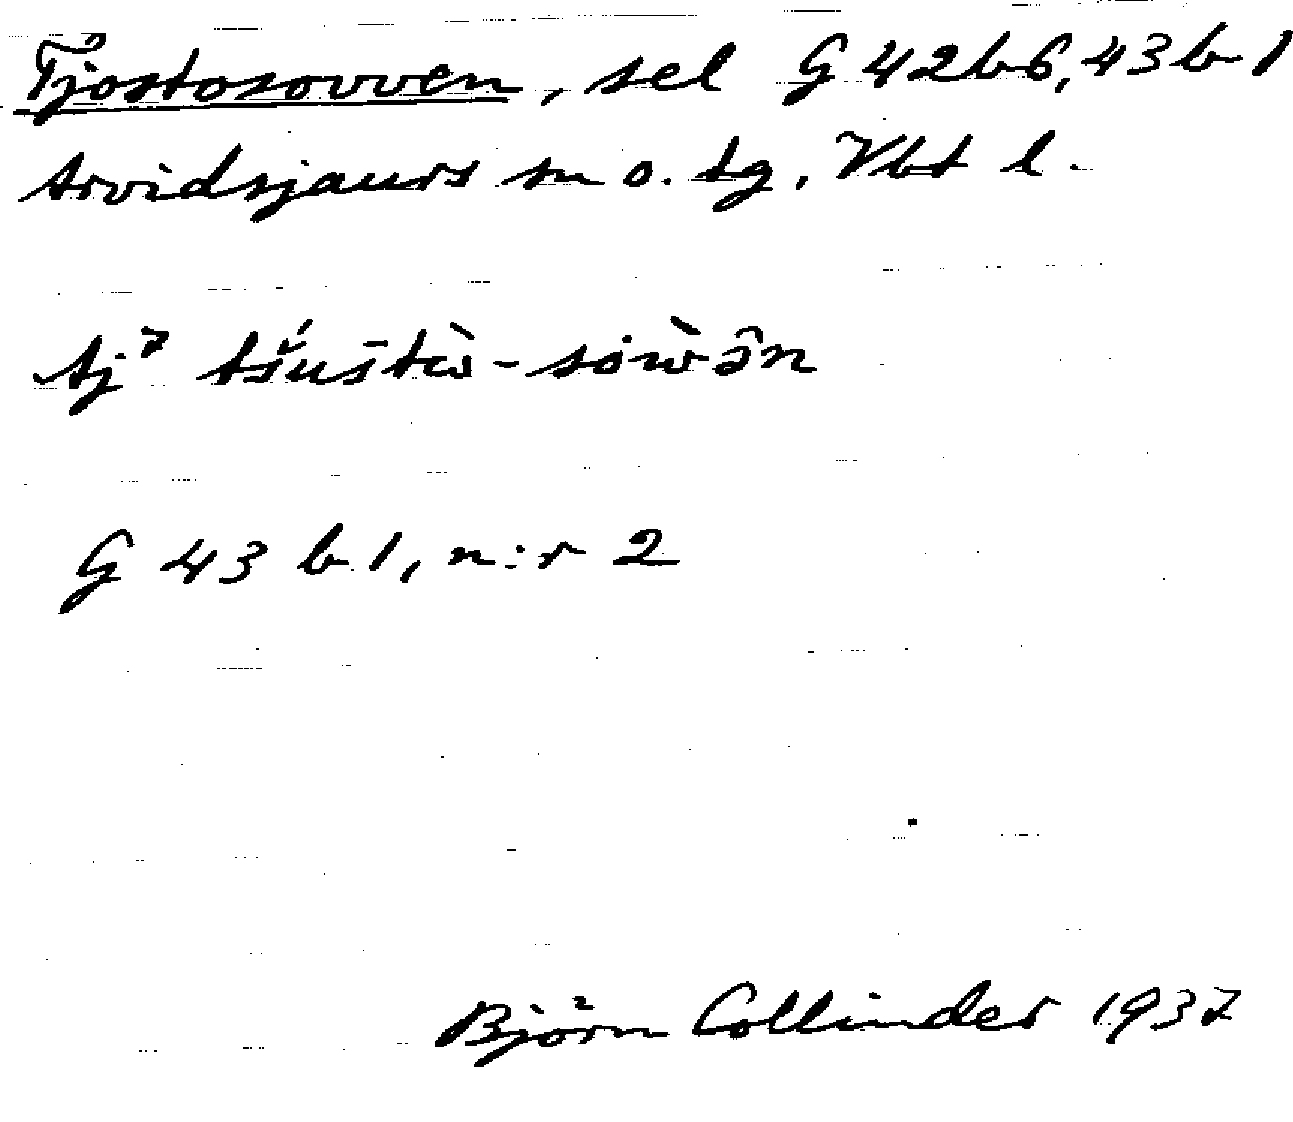 Tjostosovven, sel G 42b6, 43b1
Arvidsjaurs sn o. tg, Vbt l.
Aj⁷
G 43 b 1, n:r 2
Björn Collinder 1937